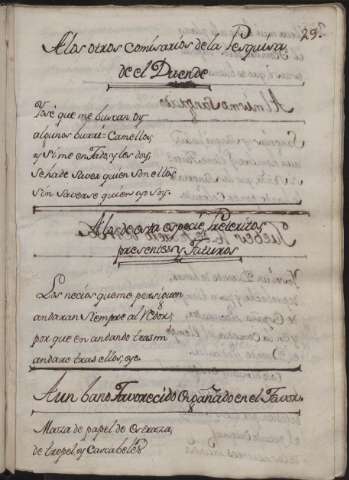 29.
A los otros comisarios de la Pesquisa
de el Duende
Yo sé que me buscan oy
algunos
y si me enfado, y les doy,
se ha de saver quien son ellos
sin saverse quien yo soy.
A los de esta especie Preteritos,
presentes, y Futuros
Los necios que me persiguen
andaran siempre al
por que en andando tras mi
andare tras ellos, yo.
A un bano Favorecido engañado en el Favor.
Maza de papel de
de tropel, y Cascabeles